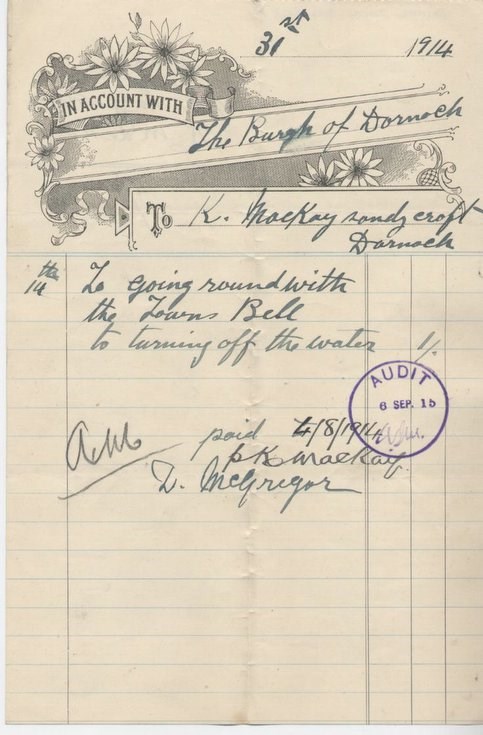 31st 1914
IN ACCOUNT WITH
The Burgh of Dornoch
To K. MacKay sandycroft
Dornoch
14th To going round with
the Towns Bell
to turning off the water 1/.
AUDIT
6 SEP. 15
paid 4/8/1914
pK MacKay
D. McGregor